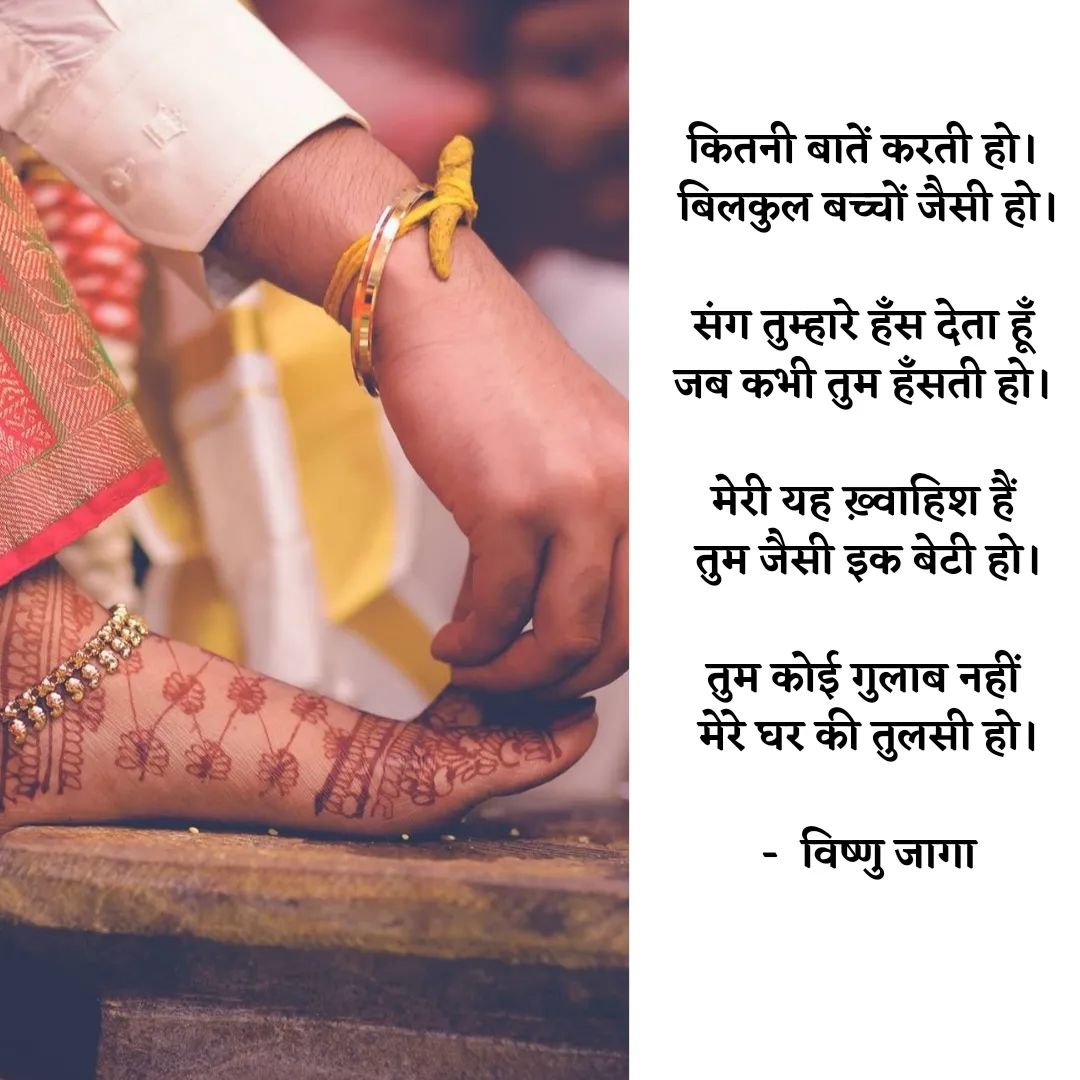 कितनी बातें करती हो।
बिलकुल बच्चों जैसी हो।
संग तुम्हारे हँस देता हूँ
जब कभी तुम हँसती हो।
मेरी यह ख़्वाहिश हैं
तुम जैसी इक बेटी हो।
तुम कोई गुलाब नहीं
मेरे घर की तुलसी हो।
- विष्णु जागा